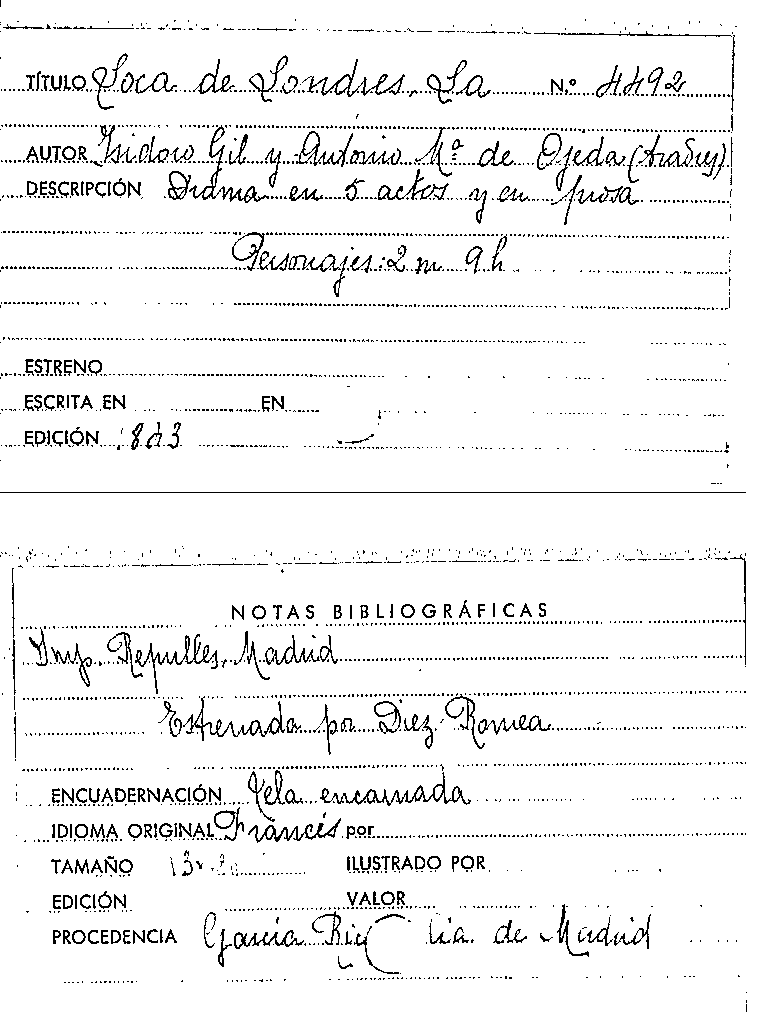 TÍTULO Loca de Londres, La N.º 4492
AUTOR Isidoro Gil y Antonio Mª de Ojeda (
DESCRIPCIÓN Drama en 5 actos y en prosa
Personajes: 2 m 9 h
ESTRENO
ESCRITA EN EN
EDICIÓN
NOTAS BIBLIOGRÁFICAS
Imp. Repulles, Madrid
Estrenada por Diez-Romea
ENCUADERNACIÓN Tela encarnada
IDIOMA ORIGINAL Francés por
TAMAÑO ILUSTRADO POR
EDICIÓN VALOR
PROCEDENCIA García Rico Cia. de Madrid